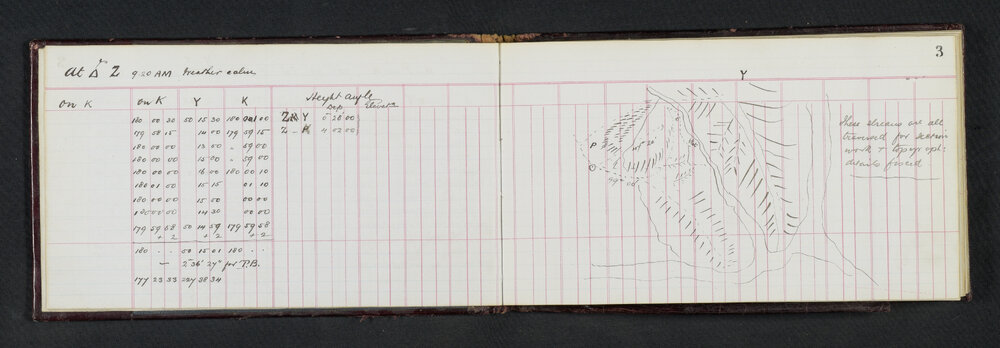 At Δ Z 9.20 AM Weather calm
Height angle
on K on K Y K Dep Elevatn
180 00 30 50 15 30 180 00 00 Z Y 0 28 00
179 58 15 14 00 179 59 15 Z - K 4 02 00
180 00 00 13 00 " 59 00
180 00 00 15 00 " 59 00
180 00 00 16 00 180 00 10
180 01 00 15 15 01 10
180 00 00 15 50 00 00
180 00 00 14 30 00 00
179 59 58 50 14 59 179 59 58
+ 2 + 2 + 2
180 . . 50 15 01 180 . .
— 2° 36' 27" for T.B.
177 23 33 227 38 34
3
Y
P
Q
49 00
These streams are all
traversed for
work + topogr aph:
details fixed.